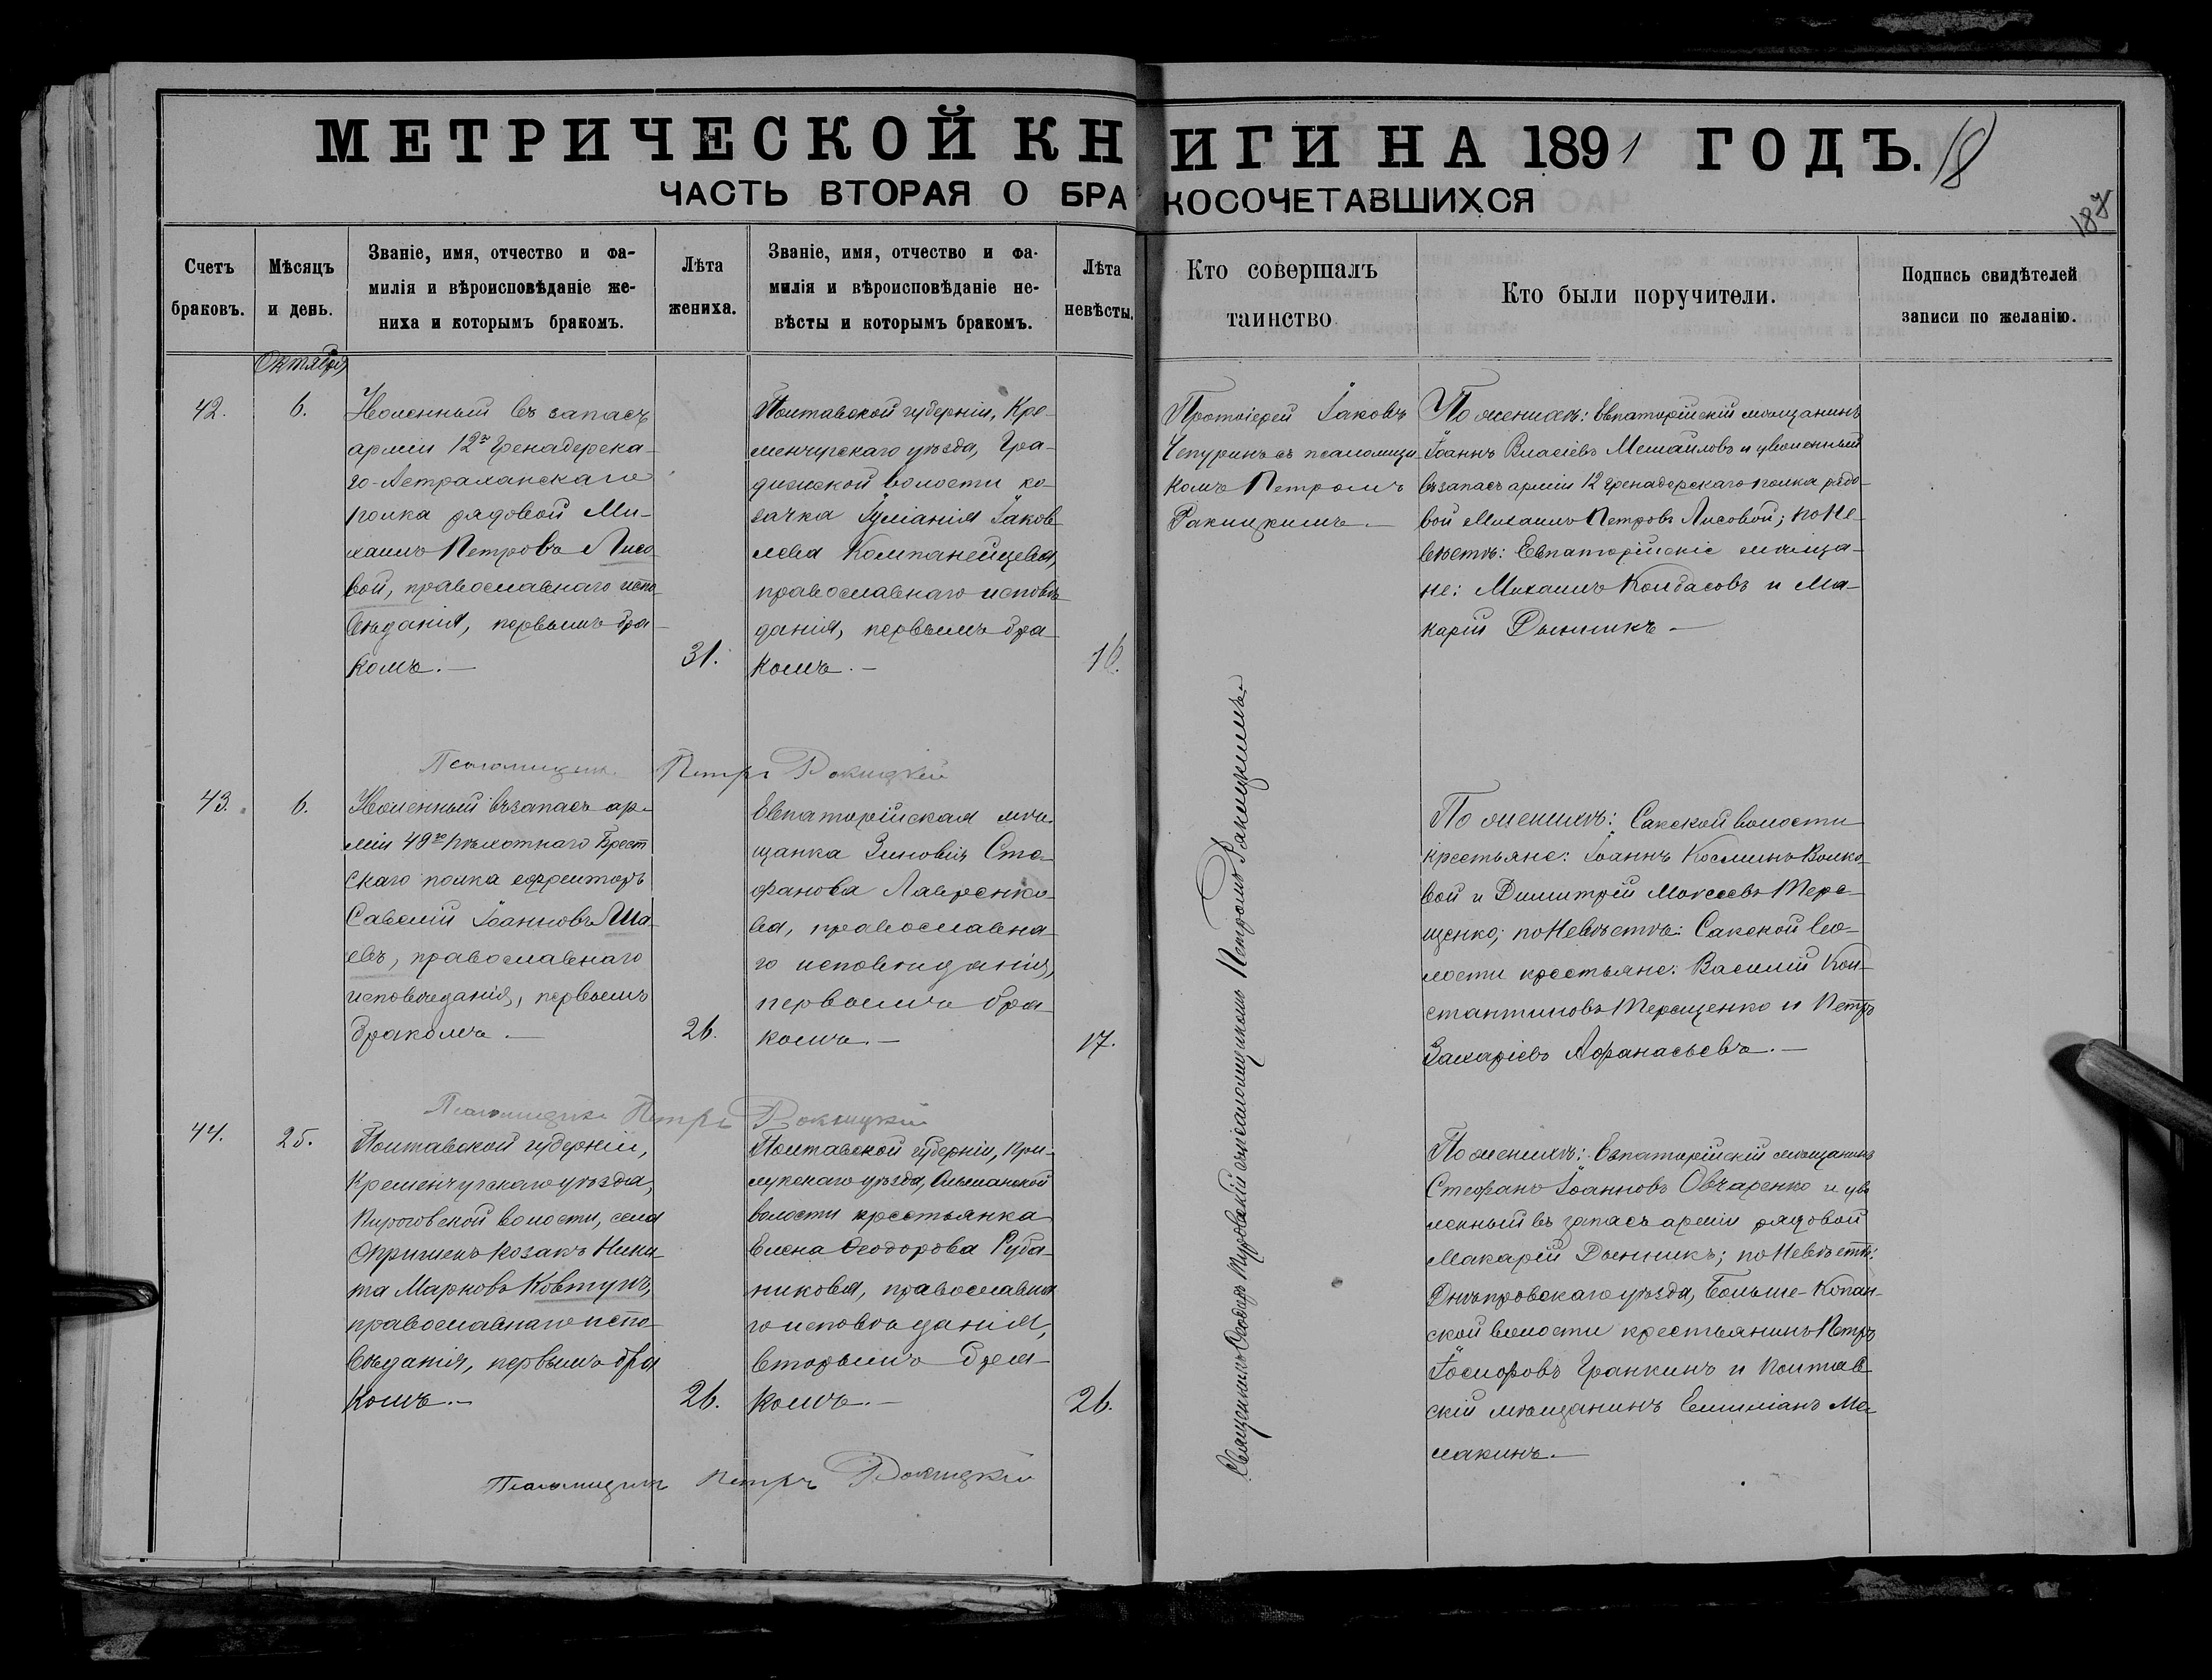 МЕТРИЧЕСКОЙ КНИГИ НА 1891 ГОДЪ. 18
ЧАСТЬ ВТОРАЯ О БРАКОСОЧЕТАВШИХСЯ
187
Счетъ
браковъ.
Мѣсяцъ
и день.
Званіе, имя, отчество и фа-
милія и вѣроисповѣданіе же-
ниха и которымъ бракомъ.
Лѣта
жениха.
Званіе, имя, отчество и фа-
милія и вѣроисповѣданіе не-
вѣсты и которымъ бракомъ.
Лѣта
невѣсты.
Кто совершалъ
таинство
Кто были поручители.
Подпись свидѣтелей
записи по желанію.
Октября
42.
6.
Уволенный въ запасъ
арміи 12го Гренадерска-
го Астраханскаго
полка рядовой Ми-
хаилъ Петровъ Лисо-
вой, православнаго испо-
вѣданія, первымъ бра-
комъ.—
31.
Полтавской губерніи, Кре-
менчугскаго уѣзда, Гра-
дижской волости ко-
зачка Іуліанія Іаков-
лева Компанейцева,
православнаго исповѣ-
данія, первымъ бра-
комъ.—
16.
Протоіерей Іаковъ
Чепуринъ съ псаломщи-
комъ Петромъ
Ракицкимъ.—
По женихѣ: Евпаторійскій мѣщанинъ
Іоаннъ Власіевъ Мешайловъ и уволенный
въ запасъ арміи 12 гренадерскаго полка рядо-
вой Михаилъ Петровъ Лисовой; по не-
вѣстѣ: Евпаторійскіе мѣща-
не: Михаилъ Колбасовъ и Ма-
карій Дынникъ—
Псаломщикъ Петръ Ракицкій
43.
6.
Уволенный въ запасъ ар-
міи 49го пѣхотнаго Брест
скаго полка ефрейторъ
Савелій Іоанновъ Ша-
евъ, православнаго
исповѣданія, первымъ
бракомъ.—
26.
Евпаторійская мѣ-
щанка Зиновія Сте-
фанова Лавренко-
ва, православна-
го исповѣданія,
первымъ бра-
комъ.—
17.
По женихѣ: Сакской волости
крестьяне: Іоаннъ Косминъ Волко-
вой и Димитрій Моисеевъ Тере-
щенко; по невѣстѣ: Сакской во-
лости крестьяне: Василій Кон-
стантиновъ Терещенко и Петръ
Захаріевъ Афанасьевъ.—
Псаломщикъ Петръ Ракицкій
44.
25.
Полтавской губерніи,
Кременчугскаго уѣзда,
Пироговской волости, села
Опришекъ козакъ Ники-
та Марковъ Ковтунъ,
православнаго испо-
вѣданія, первымъ бра
комъ.—
26.
Полтавской губерніи, При-
лукскаго уѣзда,
волости крестьянка
Елена Ѳеодорова Руба-
никова, православна
го исповѣданія,
вторымъ бра-
комъ.—
26.
Священникъ Ѳеодоръ Туровскій съ псаломщикомъ Петромъ Ракицкимъ.
По женихѣ: Евпаторійскій мѣщанинъ
Стефанъ Іоанновъ Овчаренко и уво
ленный въ запасъ арміи рядовой
Макарій Дынникъ; по невѣстѣ:
Днѣпровскаго уѣзда, Больше-Копан-
ской волости крестьянинъ Петръ
Іосифовъ Гранкинъ и Полтав-
скій мѣщанинъ Емиліанъ Ма-
лакинъ.—
Псаломщикъ Петръ Ракицкій